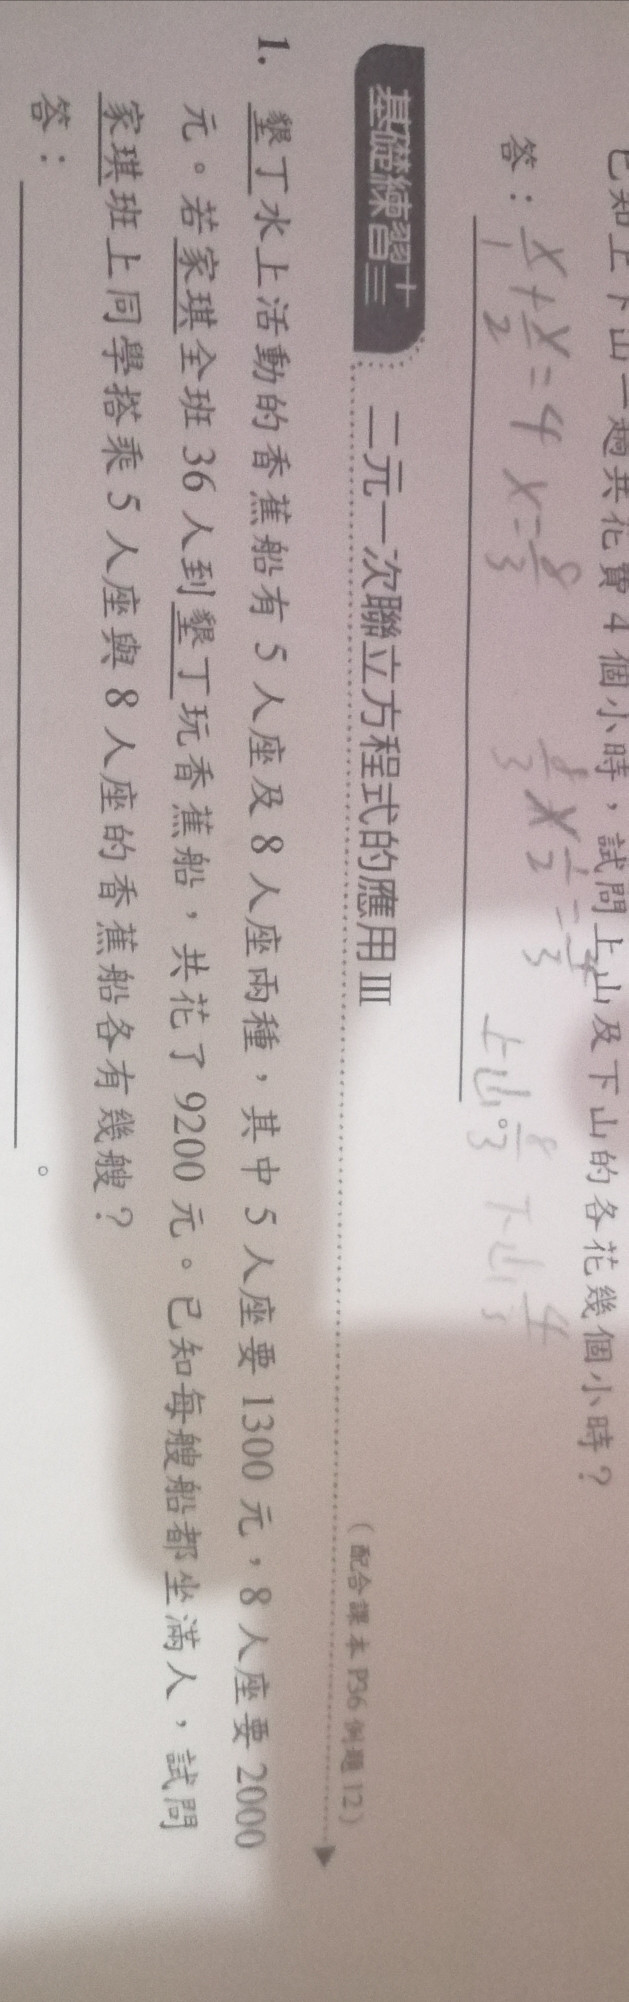 已知上下山一趟共花費 4 個小時，試問上山及下山的各花幾個小時？
答：x/1 + x/2 = 4 x = 8/3 8/3 × 1/2 = 4/3 上山 8/3 下山 4/3
。
基礎練習十三 二元一次聯立方程式的應用 III
（配合課本 P36 例題 12）
1. 墾丁水上活動的香蕉船有 5 人座及 8 人座兩種，其中 5 人座要 1300 元，8 人座要 2000
元。若家琪全班 36 人到墾丁玩香蕉船，共花了 9200 元。已知每艘船都坐滿人，試問
家琪班上同學搭乘 5 人座與 8 人座的香蕉船各有幾艘？
答：
。